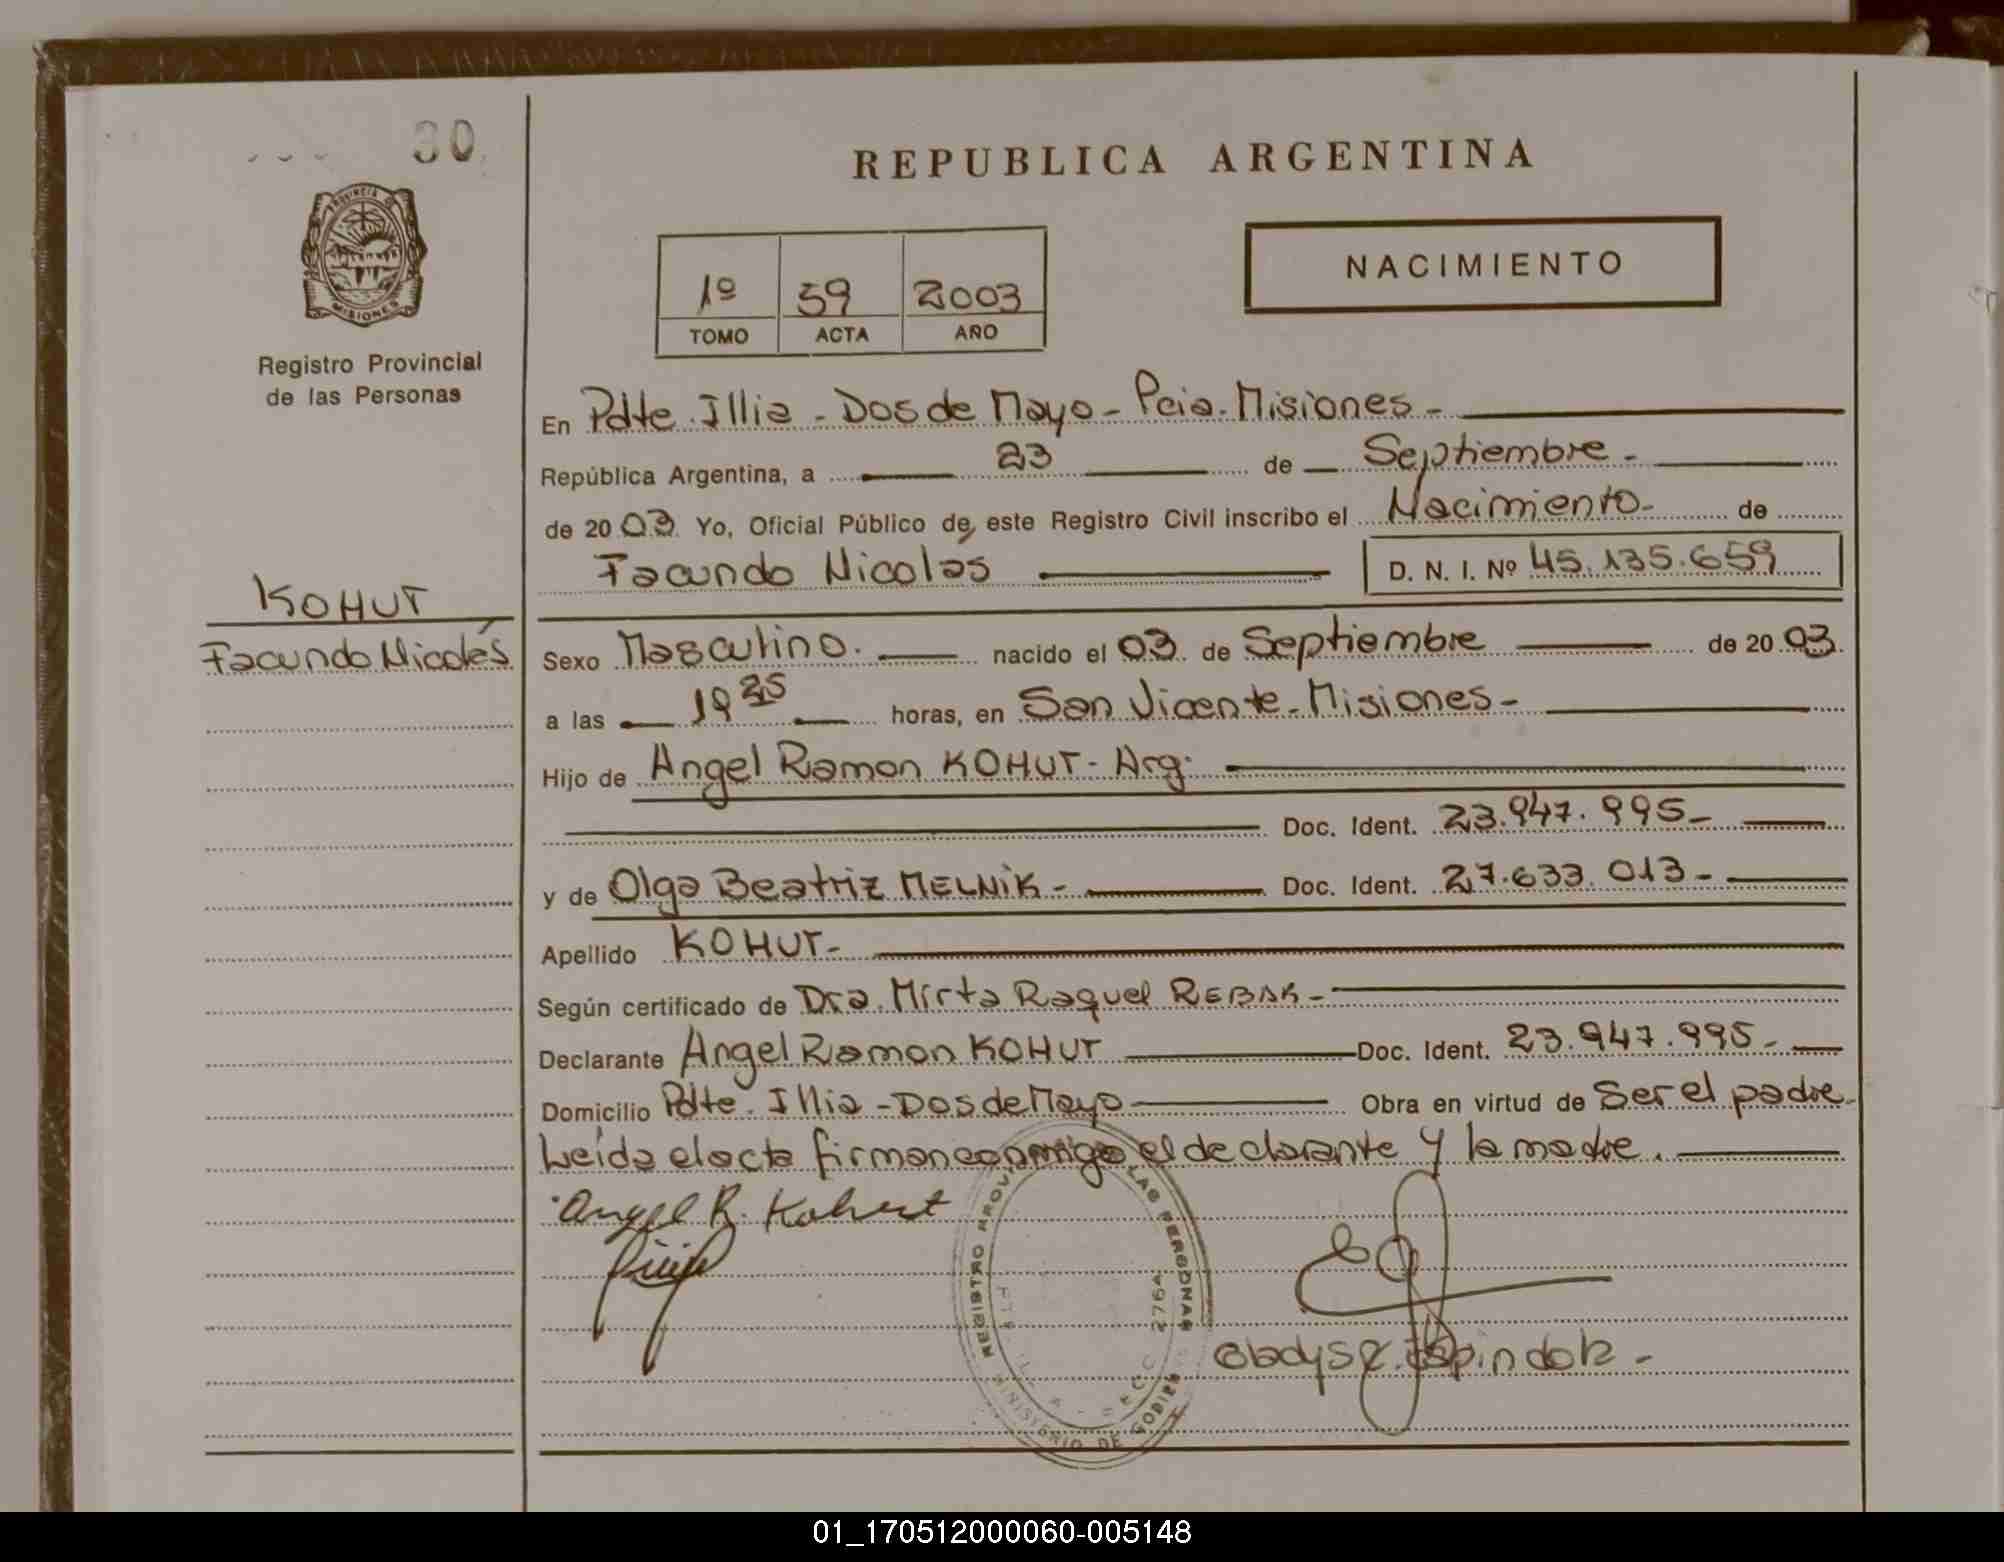 30
REPUBLICA ARGENTINA
PROVINCIA DE
MISIONES
NACIMIENTO
1º 59 2003
TOMO ACTA AÑO
Registro Provincial
de las Personas
En Pdte. Illia - Dos de Mayo - Pcia. Misiones -
República Argentina, a 23 de Septiembre -
de 2003 Yo, Oficial Público de este Registro Civil inscribo el Nacimiento - de
Facundo Nicolás D. N. I. Nº 45.135.659
KOHUT
Facundo Nicolás
Sexo Masculino. nacido el 03 de Septiembre de 2003.
a las 19 25 horas, en San Vicente - Misiones -
Hijo de Angel Ramon KOHUT - Arg.
Doc. Ident. 23.947.995 -
y de Olga Beatriz MELNIK - Doc. Ident. 27.633.013 -
Apellido KOHUT -
Según certificado de Dra. Mirta Raquel REBAK -
Declarante Angel Ramon KOHUT Doc. Ident. 23.947.995 -
Domicilio Pdte. Illia - Dos de Mayo Obra en virtud de Ser el padre -
Leída el acta firman conmigo el declarante y la madre.
Angel R. Kohut
REGISTRO PROVINCIAL DE LAS PERSONAS
MINISTERIO DE GOBIERNO
2764
Gladys E. Espindola -
01_170512000060-005148